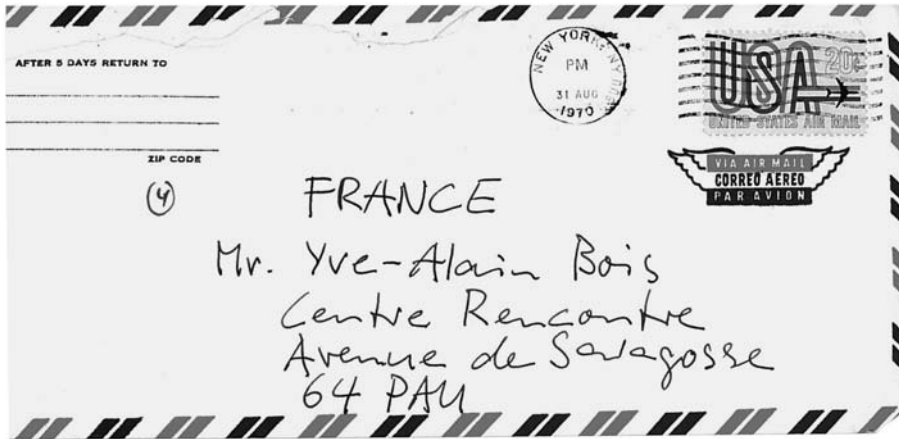 AFTER 5 DAYS RETURN TO
ZIP CODE
4
NEW YORK, NY
PM
31 AUG
1970
USA 20¢
UNITED STATES AIR MAIL
VIA AIR MAIL
CORREO AEREO
PAR AVION
FRANCE
Mr. Yve-Alain Bois
Centre Rencontre
Avenue de Saragosse
64 PAU